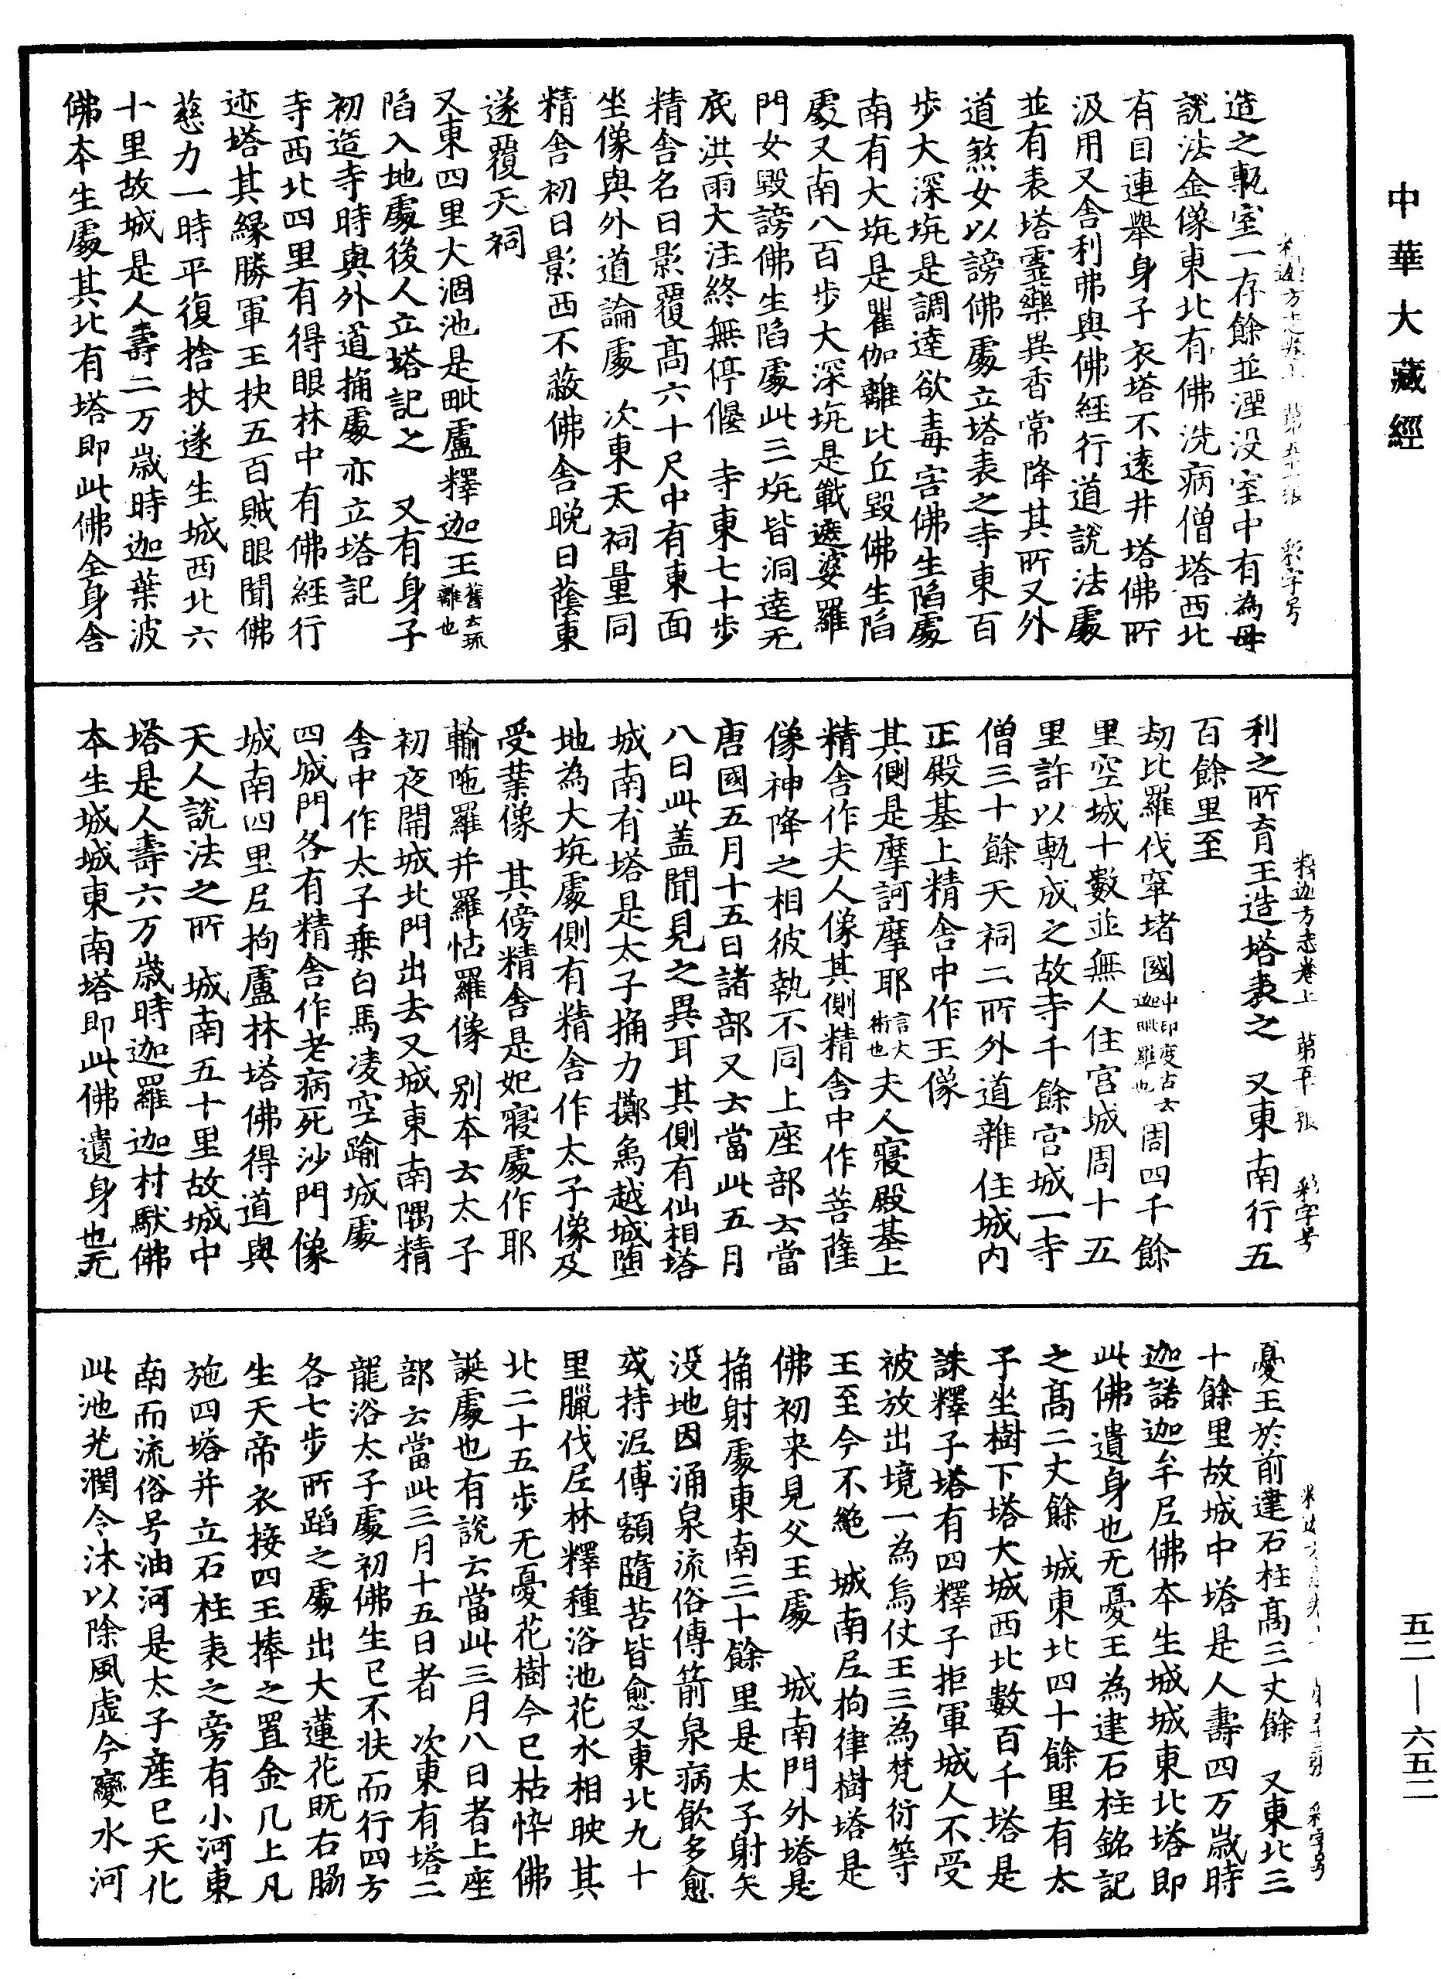 中華大藏經
釋迦方志卷上 第 張 彩字号
造之甎室一存餘並湮没室中有為母
說法金像東北有佛洗病僧塔西北
有目連舉身子衣塔不遠井塔佛所
汲用又舍利弗與佛經行道說法處
並有表塔靈樂異香常降其所又外
道煞女以謗佛處立塔表之寺東百
步大深坑是調達欲毒害佛生陷處
南有大坑是瞿伽離比丘毀佛生陷
處又南八百步大深坑是戰遮婆羅
門女毀謗佛生陷處此三坑皆洞達无
底洪雨大注終無停偃 寺東七十步
精舍名曰影覆高六十尺中有東面
坐像與外道論處 次東天祠量同
精舍初日影西不蔽佛舍晚日蔭東
遂覆天祠
又東四里大涸池是毗盧釋迦王舊云琉離也
陷入地處後人立塔記之 又有身子
初造寺時與外道捔處亦立塔記
寺西北四里有得眼林中有佛經行
迹塔其緣勝軍王抉五百賊眼聞佛
慈力一時平復捨杖遂生城西北六
十里故城是人壽二万歲時迦葉波
佛本生處其北有塔即此佛全身舍
釋迦方志卷上 第 張 彩字号
利之所育王造塔表之 又東南行五
百餘里至
劫比羅伐窣堵國中印度古云迦毗羅也周四千餘
里空城十數並無人住宮城周十五
里許以甎成之故寺千餘宮城一寺
僧三十餘天祠二所外道雜住城内
正殿基上精舍中作王像
其側是摩訶摩耶言大術也夫人寢殿基上
精舍作夫人像其側精舍中作菩薩
像神降之相彼執不同上座部云當
唐國五月十五日諸部又云當此五月
八日此盖聞見之異耳其側有仙相塔
城南有塔是太子捔力擲象越城墮
地為大坑處側有精舍作太子像及
受業像 其傍精舍是妃寢處作耶
輸陁羅并羅怙羅像 别本云太子
初夜開城北門出去又城東南隅精
舍中作太子乗白馬凌空踰城處
四城門各有精舍作老病死沙門像
城南四里尼拘盧林塔佛得道與
天人說法之所 城南五十里故城中
塔是人壽六万歲時迦羅迦村馱佛
本生城城東南塔即此佛遺身也无
釋迦方志卷上 張 彩字号
憂王於前建石柱高三丈餘 又東北三
十餘里故城中塔是人壽四万歲時
迦諾迦牟尼佛本生城城東北塔即
此佛遺身也无憂王為建石柱銘記
之高二丈餘 城東北四十餘里有太
子坐樹下塔大城西北數百千塔是
誅釋子塔有四釋子拒軍城人不受
被放出境一為烏仗王三為梵衍等
王至今不絶 城南尼拘律樹塔是
佛初来見父王處 城南門外塔是
捔射處東南三十餘里是太子射矢
没地因涌泉流俗傳箭泉病飲多愈
或持泥傅額隨苦皆愈又東北九十
里臘伐尼林釋種浴池花水相映其
北二十五步无憂花樹今已枯悴佛
誕處也有說云當此三月八日者上座
部云當此三月十五日者 次東有塔二
龍浴太子處初佛生已不扶而行四方
各七步所蹈之處出大蓮花既右脇
生天帝衣接四王捧之置金几上凡
施四塔并立石柱表之旁有小河東
南而流俗号油河是太子産已天化
此池光潤令沐以除風虛今變水河
五二—六五二